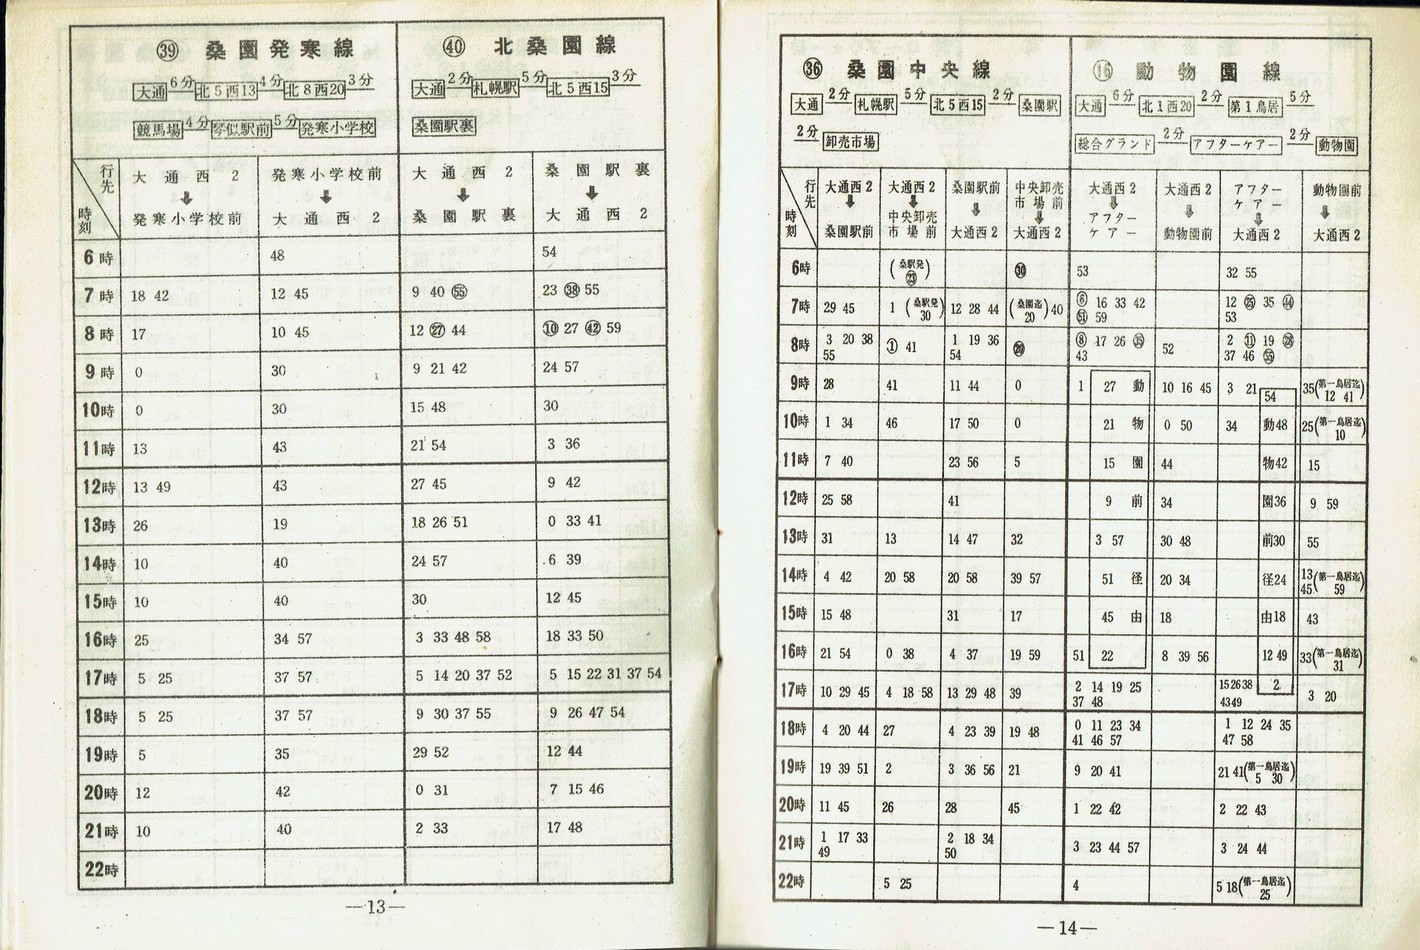 ㊴ 桑園発寒線
大通 6分 北5西13 4分 北8西20 3分
競馬場 4分 琴似駅前 5分 発寒小学校
㊵ 北桑園線
大通 2分 札幌駅 5分 北5西15 3分
桑園駅裏
行先 時刻 大通西2 ↓ 発寒小学校前 発寒小学校前 ↓ 大通西2 大通西2 ↓ 桑園駅裏 桑園駅裏 ↓ 大通西2
6時 48 54
7時 18 42 12 45 9 40 ㊿ 23 ㊳ 55
8時 17 10 45 12 ㉗ 44 ⑩ 27 ㊷ 59
9時 0 30 9 21 42 24 57
10時 0 30 15 48 30
11時 13 43 21 54 3 36
12時 13 49 43 27 45 9 42
13時 26 19 18 26 51 0 33 41
14時 10 40 24 57 6 39
15時 10 40 30 12 45
16時 25 34 57 3 33 48 58 18 33 50
17時 5 25 37 57 5 14 20 37 52 5 15 22 31 37 54
18時 5 25 37 57 9 30 37 55 9 26 47 54
19時 5 35 29 52 12 44
20時 12 42 0 31 7 15 46
21時 10 40 2 33 17 48
22時
—13—
㊱ 桑園中央線
大通 2分 札幌駅 5分 北5西15 2分 桑園駅
2分 卸売市場
⑯ 動物園線
大通 6分 北1西20 2分 第1鳥居 5分
総合グランド 2分 アフターケアー 2分 動物園
行先 時刻 大通西2 ↓ 桑園駅前 大通西2 ↓ 中央卸売市場前 桑園駅前 ↓ 大通西2 中央卸売市場前 ↓ 大通西2 大通西2 ↓ アフターケアー 大通西2 ↓ 動物園前 アフターケアー ↓ 大通西2 動物園前 ↓ 大通西2
6時 (桑駅発 ㉓) ㉚ 53 32 55
7時 29 45 1 (桑駅発 30) 12 28 44 (桑園迄 20) 40 ⑥ 16 33 42 59 12 ㉕ 35 ㊹ 53
8時 3 20 38 55 ① 41 1 19 36 54 ⑳ ⑧ 17 26 ㉟ 43 52 2 ⑪ 19 ㉘ 37 46
9時 28 41 11 44 0 1 27 動 10 16 45 3 21 54 35 (第一鳥居迄 12 41)
10時 1 34 46 17 50 0 21 物 0 50 34 動48 25 (第一鳥居迄 10)
11時 7 40 23 56 5 15 園 44 物42 15
12時 25 58 41 9 前 34 園36 9 59
13時 31 13 14 47 32 3 57 30 48 前30 55
14時 4 42 20 58 20 58 39 57 51 径 20 34 径24 13 45 (第一鳥居迄 59)
15時 15 48 31 17 45 由 18 由18 43
16時 21 54 0 38 4 37 19 59 51 22 8 39 56 12 49 33 (第一鳥居迄 31)
17時 10 29 45 4 18 58 13 29 48 39 2 14 19 25 37 48 15 26 38 43 49 2 3 20
18時 4 20 44 27 4 23 39 19 48 0 11 23 34 41 46 57 1 12 24 35 47 58
19時 19 39 51 2 3 36 56 21 9 20 41 21 41 (第一鳥居迄 5 30)
20時 11 45 26 28 45 1 22 42 2 22 43
21時 1 17 33 49 2 18 34 50 3 23 44 57 3 24 44
22時 5 25 4 5 18 (第一鳥居迄 25)
—14—